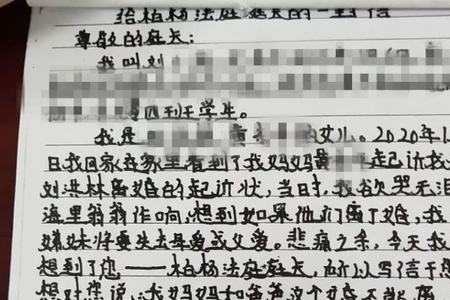 给柏杨法庭庭长的一封信
尊敬的庭长:
我叫刘
四班学生。
我是 的女儿。2020年1
日我回家在家里看到了我妈妈 起诉我
刘洪林离婚的起诉状,当时,我欲哭无泪
海里翁翁作响,想到如果他们离了婚,我
妹妹将要失去母爱或父爱。悲痛之余,今天我
想到了您——柏杨法庭庭长,所以写信于您
想对您说,我妈妈和爸爸这个婚不能离